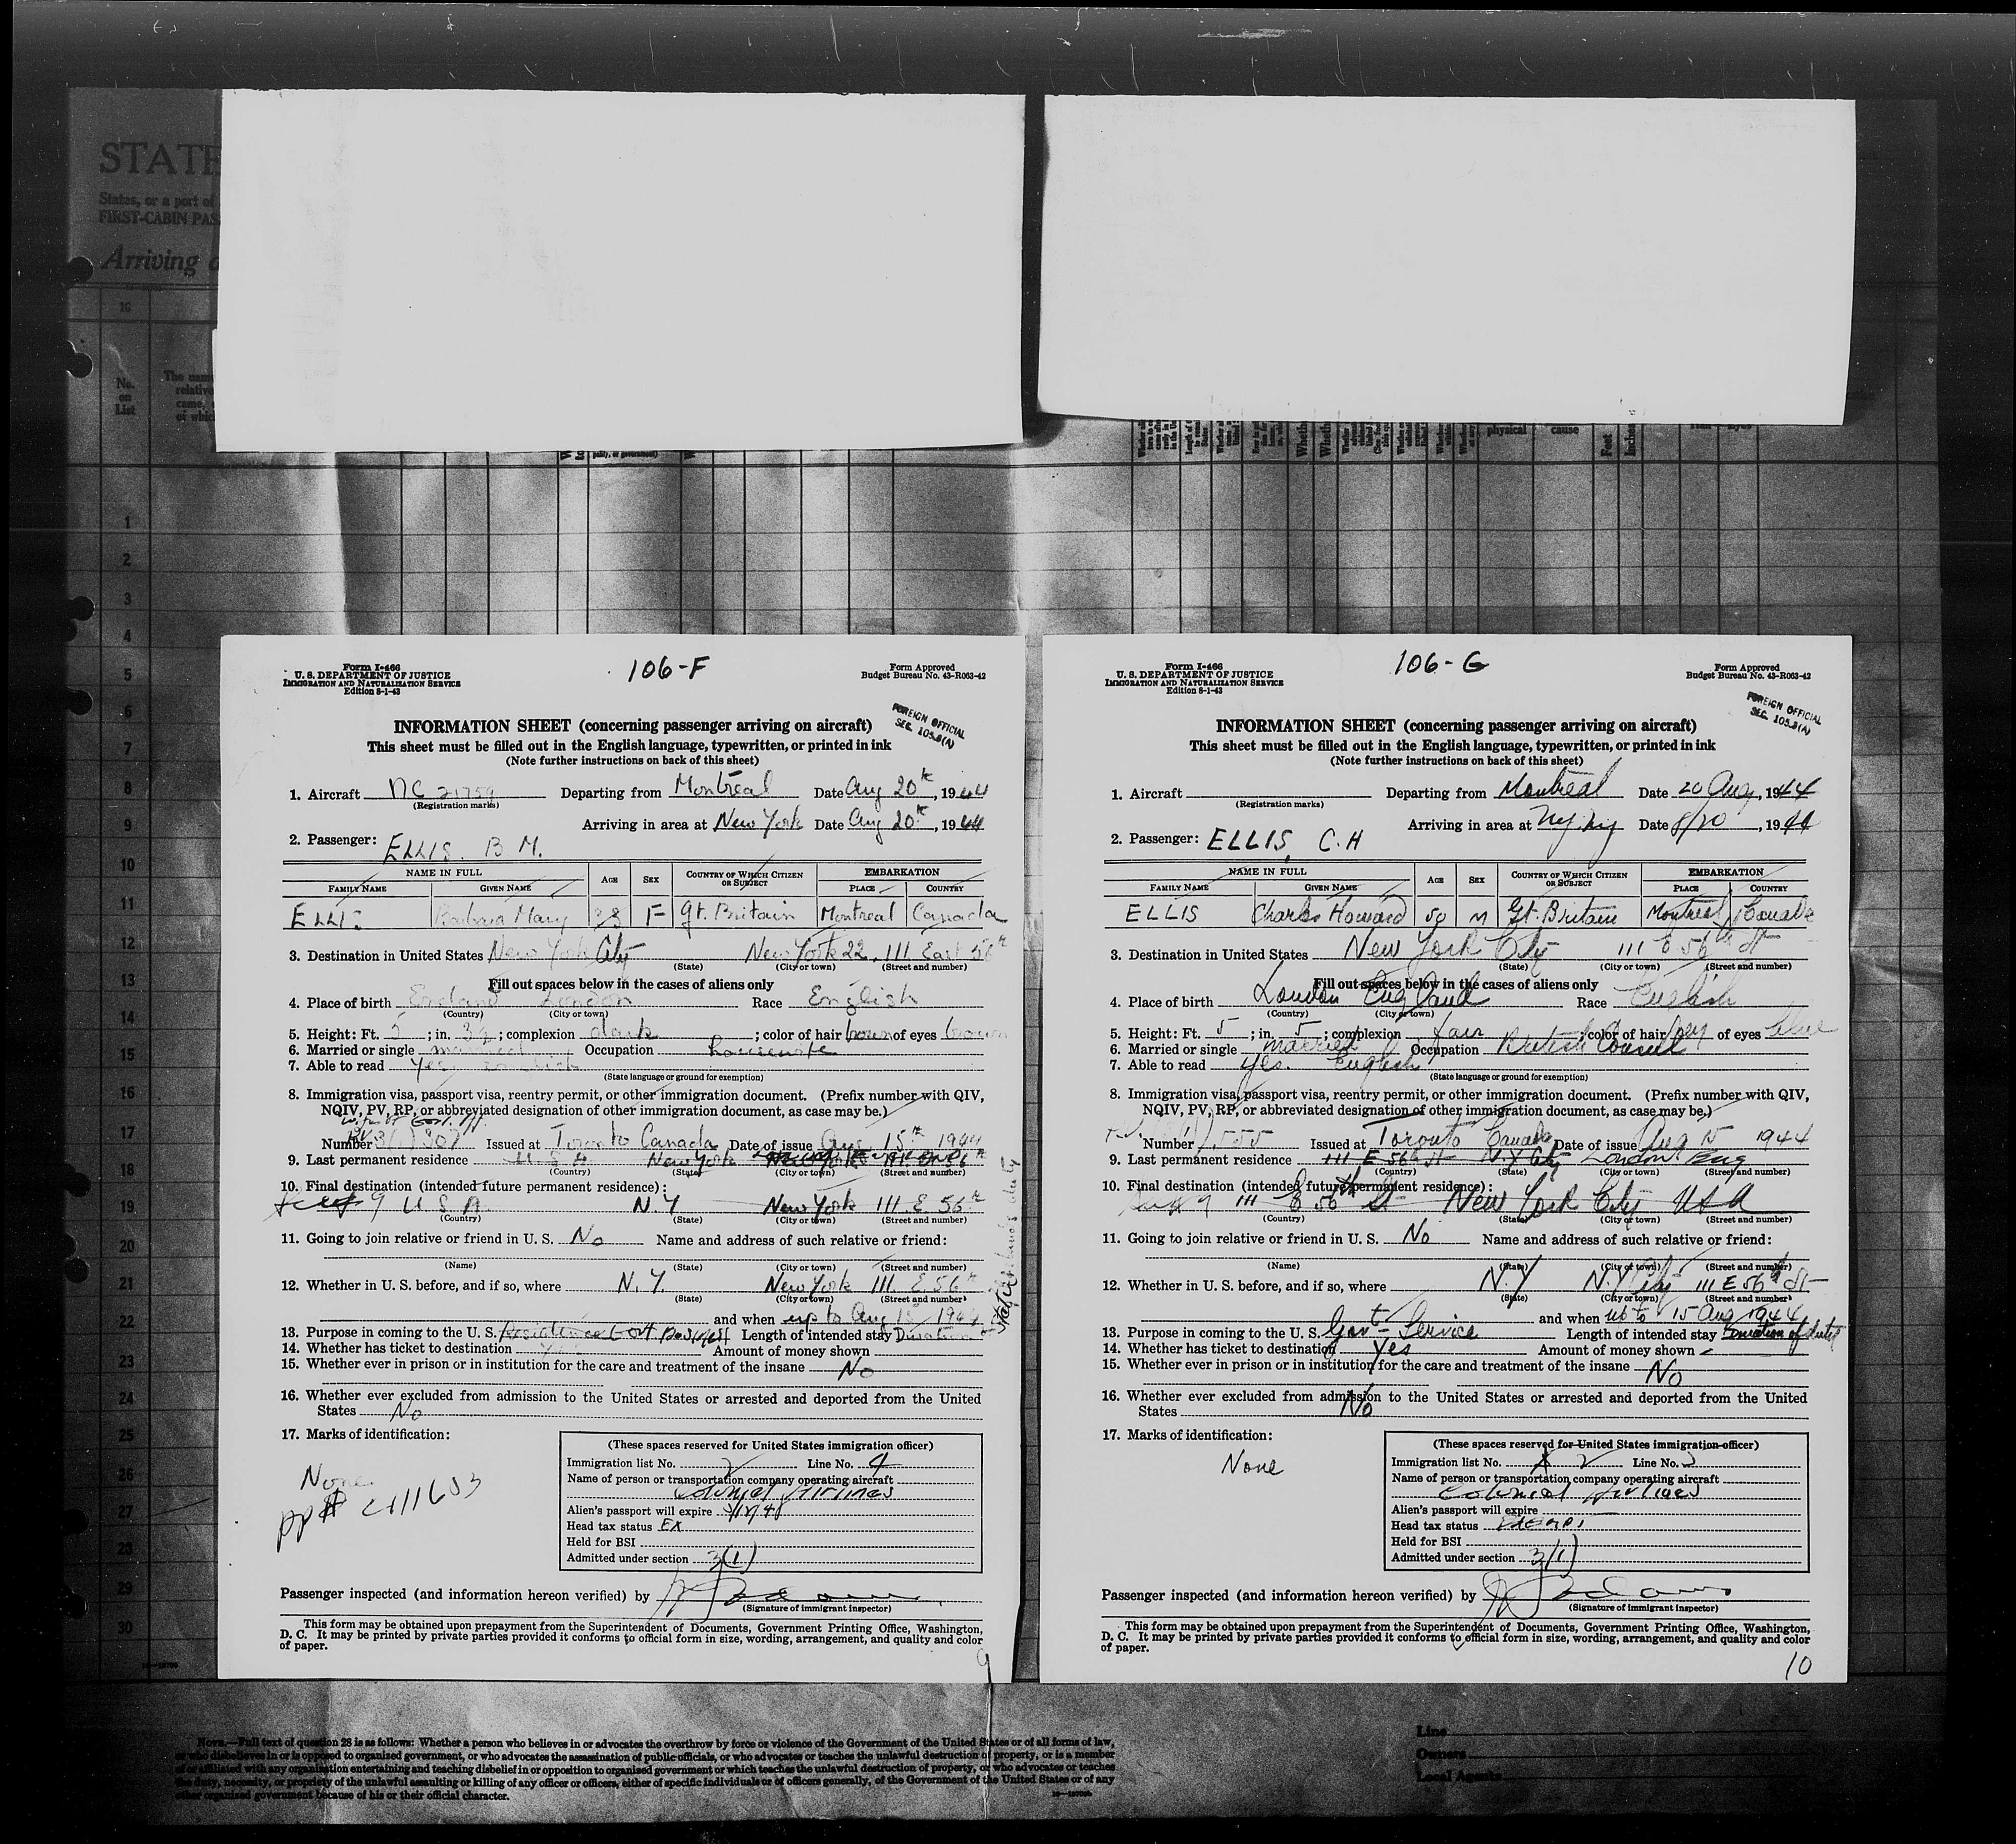 STATE
States, or a port of
FIRST-CABIN PAS
Arriving
16
No.
on
List
The name
relative
came,
of which
physical
cause
Feet
Inches
1
2
3
4
5
6
7
8
9
10
11
12
13
14
15
16
17
18
19
20
21
22
23
24
25
26
27
28
29
30
Form I-466
U. S. DEPARTMENT OF JUSTICE
IMMIGRATION AND NATURALIZATION SERVICE
Edition 8-1-43
106-F
Form Approved
Budget Bureau No. 43-R063-42
FOREIGN OFFICIAL
SEC. 105.3(A)
INFORMATION SHEET (concerning passenger arriving on aircraft)
This sheet must be filled out in the English language, typewritten, or printed in ink
(Note further instructions on back of this sheet)
1. Aircraft NC 21759 Departing from Montreal Date Aug 20th, 1944
(Registration marks)
Arriving in area at New York Date Aug 20th, 1944
2. Passenger: ELLIS. B M.
NAME IN FULL AGE SEX COUNTRY OF WHICH CITIZEN OR SUBJECT EMBARKATION
FAMILY NAME GIVEN NAME PLACE COUNTRY
ELLIS Barbara Mary 33 F Gt. Britain Montreal Canada
3. Destination in United States New York City New York 22. 111 East 56th
(State) (City or town) (Street and number)
Fill out spaces below in the cases of aliens only
4. Place of birth England London Race English
(Country) (City or town)
5. Height: Ft. 5; in. 3½; complexion dark; color of hair brown of eyes brown
6. Married or single married Occupation housewife
7. Able to read Yes English
(State language or ground for exemption)
8. Immigration visa, passport visa, reentry permit, or other immigration document. (Prefix number with QIV,
NQIV, PV, RP, or abbreviated designation of other immigration document, as case may be.)
Wife of Govt. Off.
Number Issued at Toronto Canada Date of issue Aug 15th 1944
9. Last permanent residence U S A New York 111 E 56th
(Country) (State) (City or town) (Street and number)
10. Final destination (intended future permanent residence):
U S A. N Y New York 111. E. 56th
(Country) (State) (City or town) (Street and number)
11. Going to join relative or friend in U. S. No Name and address of such relative or friend:
(Name) (State) (City or town) (Street and number)
12. Whether in U. S. before, and if so, where N. Y. New York 111. E. 56th
(State) (City or town) (Street and number)
and when up to Aug 15 1944
13. Purpose in coming to the U. S. Residence Govt Business Length of intended stay Duration of
husband's duty
14. Whether has ticket to destination Yes Amount of money shown
15. Whether ever in prison or in institution for the care and treatment of the insane No
16. Whether ever excluded from admission to the United States or arrested and deported from the United
States No
17. Marks of identification:
None
pp#
(These spaces reserved for United States immigration officer)
Immigration list No. 2 Line No. 4
Name of person or transportation company operating aircraft
Colonial Airlines
Alien's passport will expire
Head tax status EX
Held for BSI
Admitted under section 3(1)
Passenger inspected (and information hereon verified) by Adams
(Signature of immigrant inspector)
This form may be obtained upon prepayment from the Superintendent of Documents, Government Printing Office, Washington,
D. C. It may be printed by private parties provided it conforms to official form in size, wording, arrangement, and quality and color
of paper.
9
Form I-466
U. S. DEPARTMENT OF JUSTICE
IMMIGRATION AND NATURALIZATION SERVICE
Edition 8-1-43
106-G
Form Approved
Budget Bureau No. 43-R063-42
FOREIGN OFFICIAL
SEC. 105.3(A)
INFORMATION SHEET (concerning passenger arriving on aircraft)
This sheet must be filled out in the English language, typewritten, or printed in ink
(Note further instructions on back of this sheet)
1. Aircraft Departing from Montreal Date 20 Aug, 1944
(Registration marks)
Arriving in area at Ny. Ny Date 8/20, 1944
2. Passenger: ELLIS, C. H
NAME IN FULL AGE SEX COUNTRY OF WHICH CITIZEN OR SUBJECT EMBARKATION
FAMILY NAME GIVEN NAME PLACE COUNTRY
ELLIS Charles Howard 50 M Gt. Britain Montreal Canada
3. Destination in United States New York City 111 E 56th St
(State) (City or town) (Street and number)
Fill out spaces below in the cases of aliens only
4. Place of birth London England Race English
(Country) (City or town)
5. Height: Ft. 5; in. 5; complexion fair; color of hair grey of eyes blue
6. Married or single married Occupation British Consul
7. Able to read Yes. English
(State language or ground for exemption)
8. Immigration visa, passport visa, reentry permit, or other immigration document. (Prefix number with QIV,
NQIV, PV, RP, or abbreviated designation of other immigration document, as case may be.)
Number Issued at Toronto Canada Date of issue Aug 15 1944
9. Last permanent residence 111 E 56th St N.Y. City London Eng
(Country) (State) (City or town) (Street and number)
10. Final destination (intended future permanent residence):
111 E 56th St New York City USA
(Country) (State) (City or town) (Street and number)
11. Going to join relative or friend in U. S. No Name and address of such relative or friend:
(Name) (State) (City or town) (Street and number)
12. Whether in U. S. before, and if so, where N.Y N.Y City 111 E 56th St
(State) (City or town) (Street and number)
and when up to 15 Aug 1944
13. Purpose in coming to the U. S. Govt- Service Length of intended stay Duration of duty
14. Whether has ticket to destination Yes Amount of money shown -
15. Whether ever in prison or in institution for the care and treatment of the insane No
16. Whether ever excluded from admission to the United States or arrested and deported from the United
States No
17. Marks of identification:
None
(These spaces reserved for United States immigration officer)
Immigration list No. 2 Line No. 5
Name of person or transportation company operating aircraft
Colonial Airlines
Alien's passport will expire
Head tax status Exempt
Held for BSI
Admitted under section 3(1)
Passenger inspected (and information hereon verified) by Adams
(Signature of immigrant inspector)
This form may be obtained upon prepayment from the Superintendent of Documents, Government Printing Office, Washington,
D. C. It may be printed by private parties provided it conforms to official form in size, wording, arrangement, and quality and color
of paper.
10
NOTE.—Full text of question 28 is as follows: Whether a person who believes in or advocates the overthrow by force or violence of the Government of the United States or of all forms of law,
or who disbelieves in or is opposed to organized government, or who advocates the assassination of public officials, or who advocates or teaches the unlawful destruction of property, or is a member
of or affiliated with any organization entertaining and teaching disbelief in or opposition to organized government or which teaches the unlawful destruction of property, or who advocates or teaches
the duty, necessity, or propriety of the unlawful assaulting or killing of any officer or officers, either of specific individuals or of officers generally, of the Government of the United States or of any
other organized government because of his or their official character.
Line
Owners
Local Agents